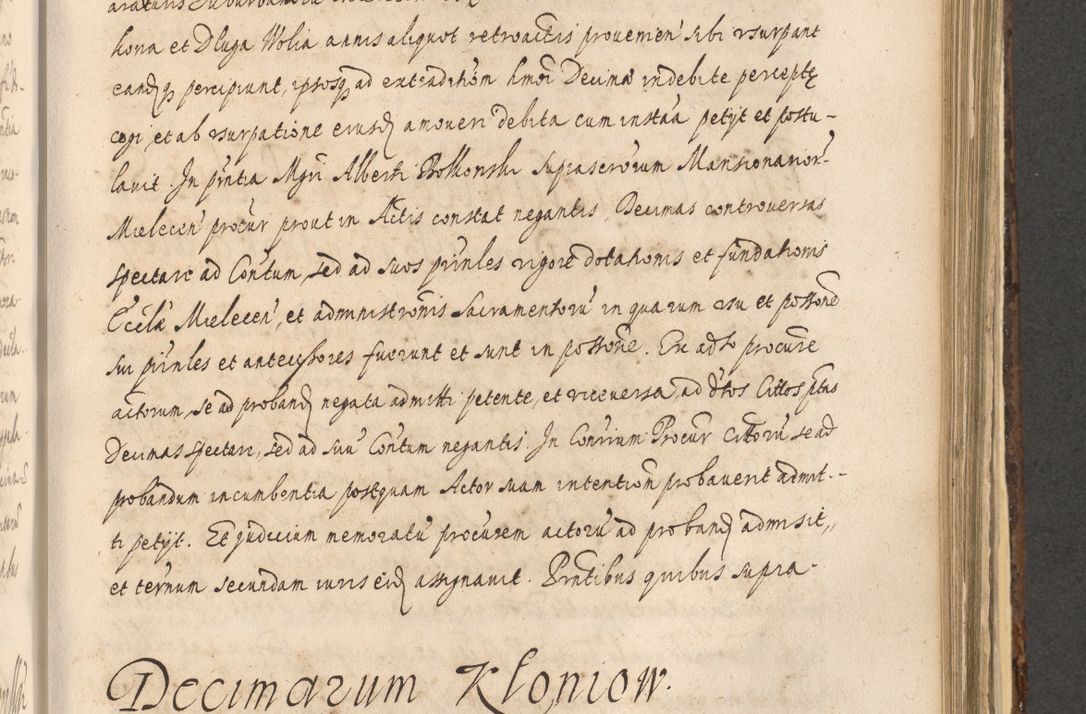 kona et Długa Wolia annis aliquot retroactis provemen̄ sibi usurpant
eandq₃ percipiunt, ipsosq₃ ad extraditiom hmōi Decimæ indebite perceptę
cogi et ab usurpatione eiusd amoveri debita cum instãa petijt et postu-
lavit. In pn̄tia Mgri Alberti Bolkonski suprascrorum Mansionarior-
Mielecen̄ procur prout in Actis constat negantis, Decimas controversas
spectare ad Contum, sed ad suos prīnles vigore dotationis et fundationis
Ecclæ Mielecen̄, et administronis Sacramentorū in quarum usu et possone
sui prīnles et antecessores fuerunt et sunt in possone. Ex adto procure
actorum, se ad proband negata admitti petente, et viceversa, ad dtos Cittos ptas
Decimas spectare, sed ad suū Contum negantis. In Conrium Procur Cittorū se ad
probandum incumbentia postquam Actor suam intention probaverit admit-
ti petijt. Et judicium memoratū procurem actorū ad proband admisit,,
et ternum secundam iuris eid assignavit. Prntibus quibus supra.
Decimarum Kłoniow.